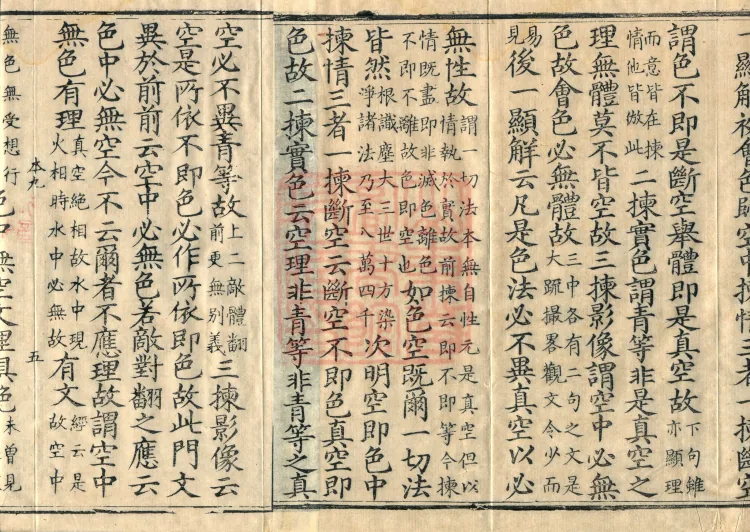 一顯解初會色歸空中揀情三者一揀斷空
謂色不即是斷空舉體即是真空故下句雖亦顯理
而意皆在揀情他皆倣此二揀實色謂青等非是真空之
理無體莫不皆空故三揀影像謂空中必無
色故會色必無體故三中各有二句之文是大䟽撮畧觀文令少而
易見後一顯解云凡是色法必不異真空以必
無性故謂一切法本無自性元是真空但以情執於實故前揀云即不即等今揀
情既盡即非滅色離色不即不離故色即空也如色空既爾一切法
皆然根識塵大三世十方染淨諸法乃至八萬四千次明空即色中
揀情三者一揀斷空云斷空不即色真空即
色故二揀實色云空理非青等非青等之真
空必不異青等故上二敵體翻前更無別義三揀影像云
空是所依不即色必作所依即色故此門文
異於前前云空中必無色若敵對翻之應云
色中必無空今不云爾者不應理故謂空中
無色有理真空絕相故水中現火相時水中必無故有文經云是故空中
本九 五
無色無受想行色中無空文理俱色未曾見